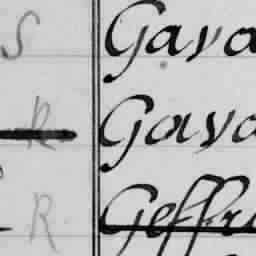 S Gava
R Gava
R Geffr